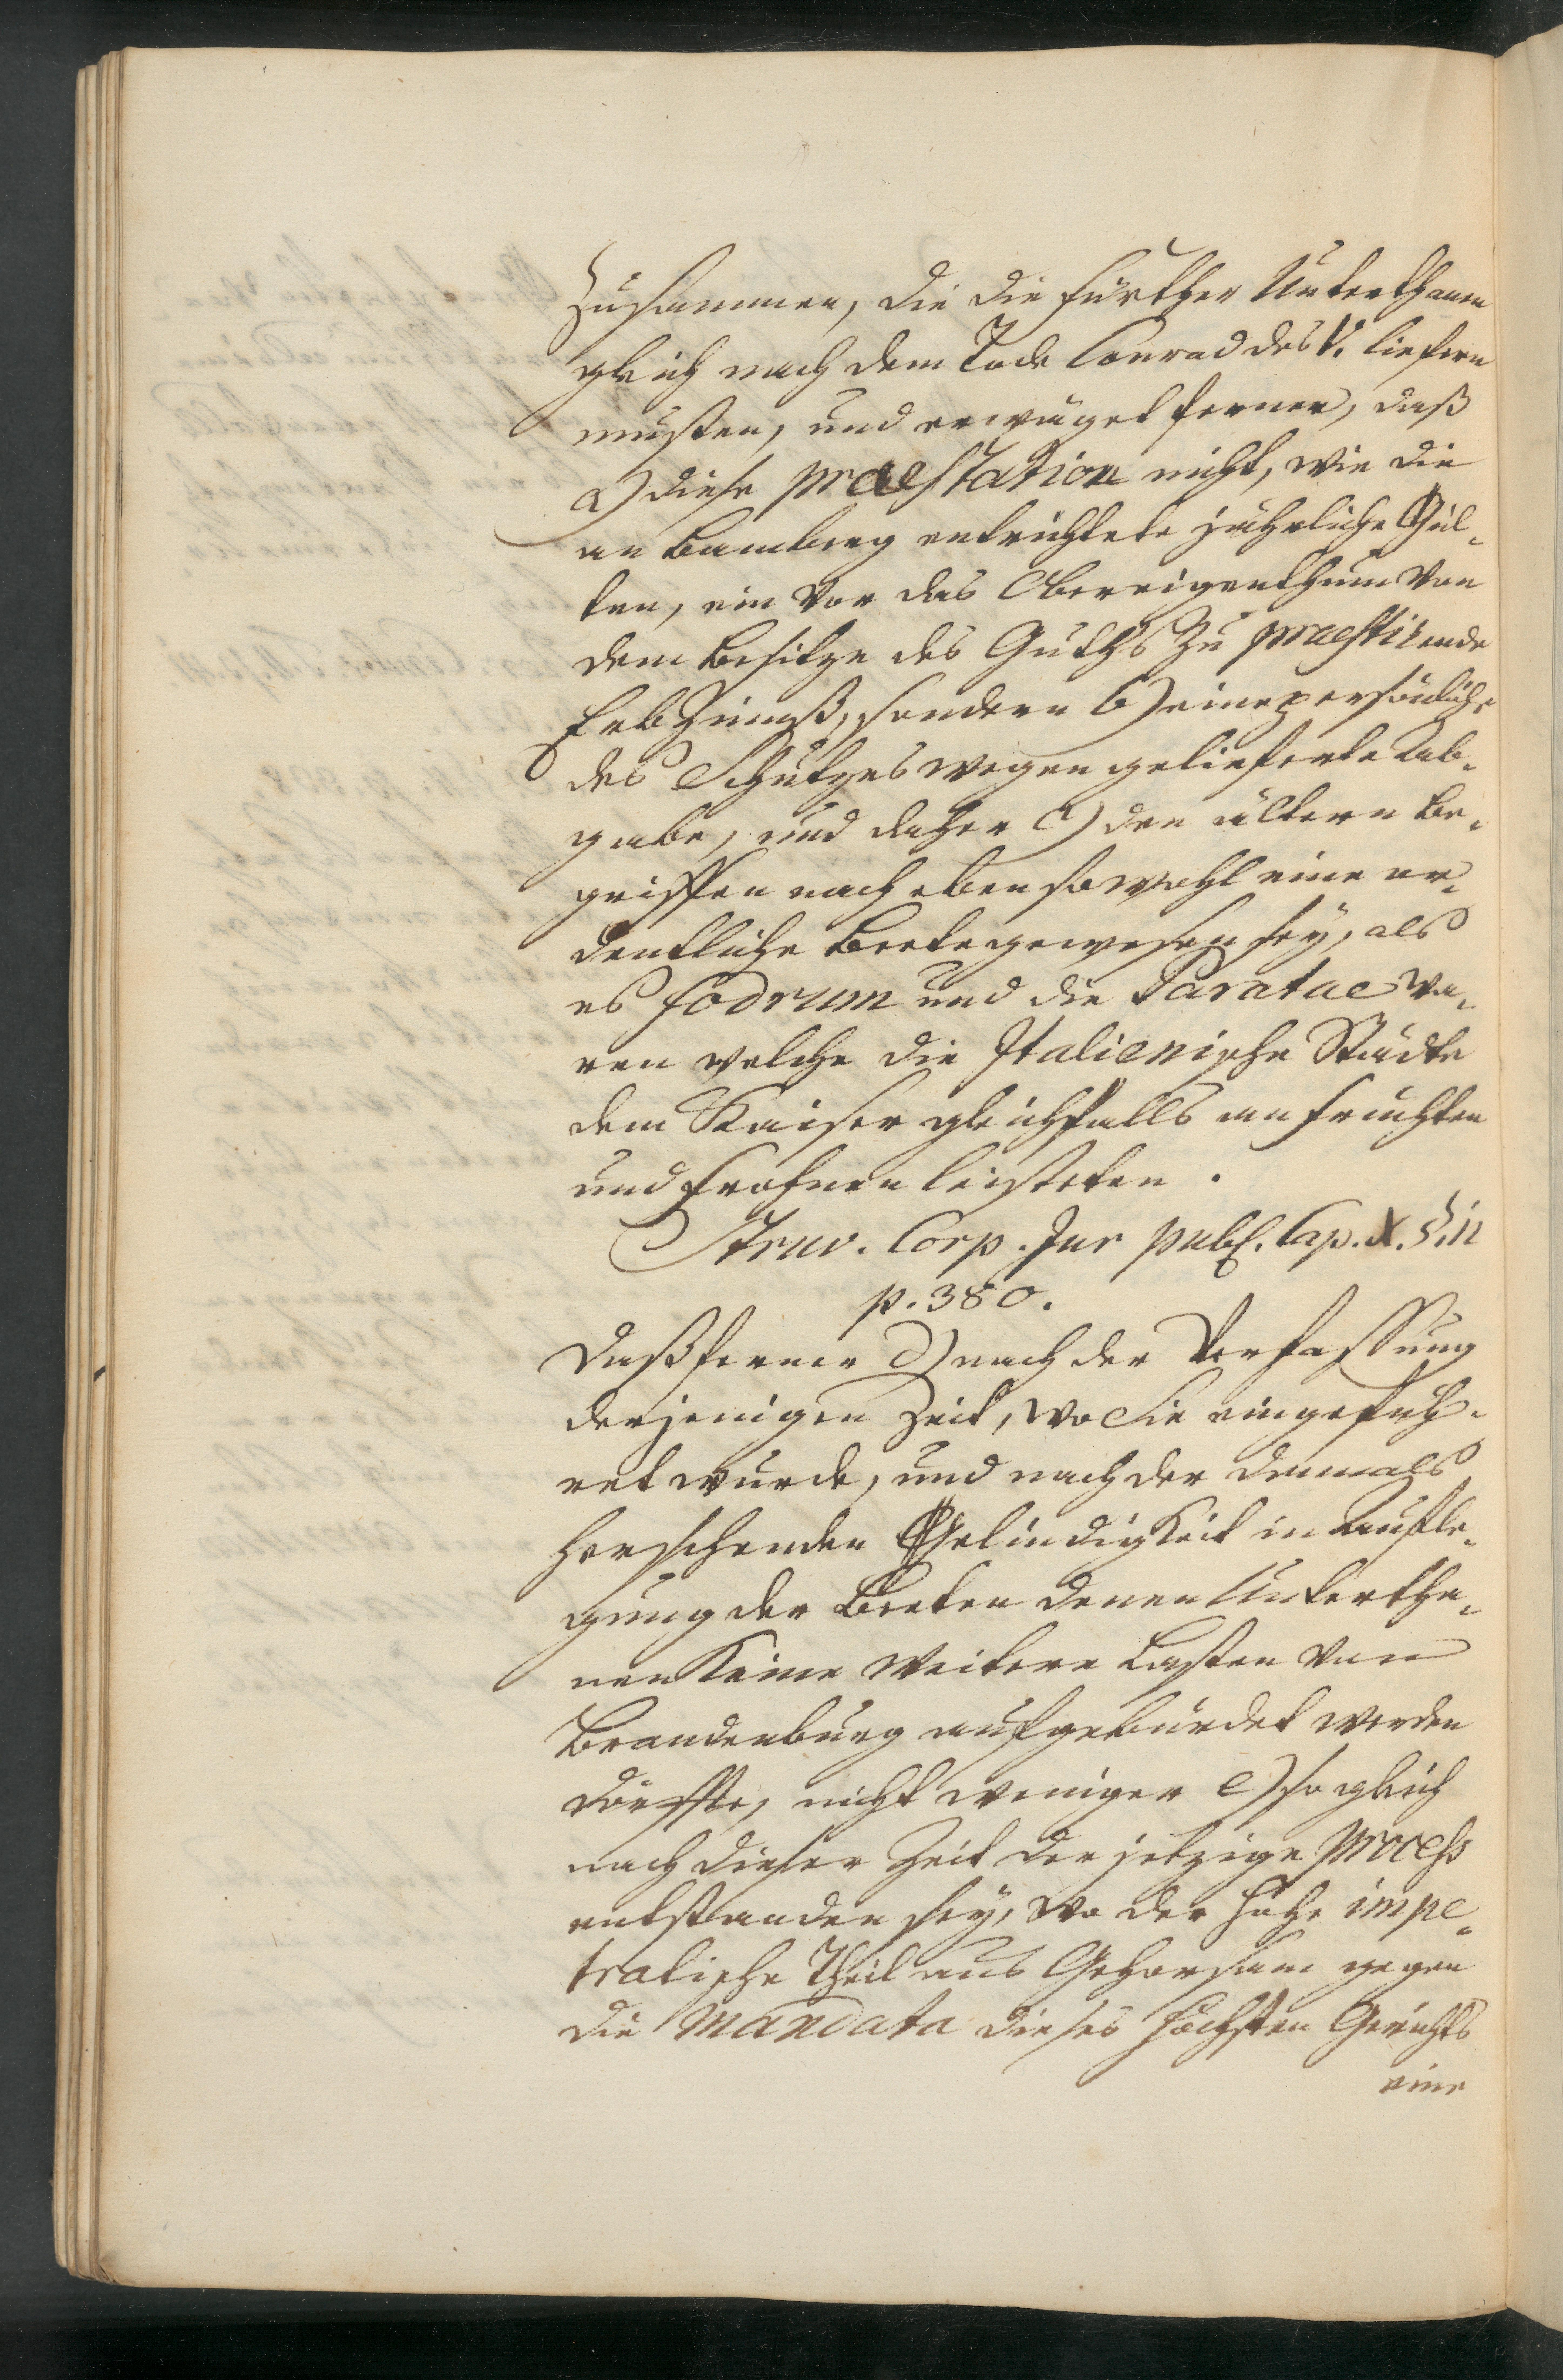 zusammen, die die fürther Unterthanen
gleich nach dem Tode Conrad des V. liefern
musten, und erwäget ferner, daß
a) diese praestation nicht, wie die
an Bamberg entrichtete jährliche Gül-
ten, ein vor das Obereigenthum von
dem Besitze des Guths zu praestirende
Erbzinnß, sondern b) eine persönliche
des Schutzes wegen gelieferte Ab-
gabe, und daher c) den ältern Be-
griffen nach eben sowohl eine or-
dentliche Beete gewesen sey, als
es fodrum und die Paratae wa-
ren welche die Italienische Städte
dem Kaiser gleichfalls an früchten
und frohnen leisteten.
Struv. Corp. Jur publ. Cap. X. §. 11
p. 380.
Daß ferner d) nach der Verfassung
derjenigen Zeit, wo sie eingefüh-
ret wurde, und nach der damals
herschenden Gelindigkeit in Aufle-
gung der Beeten denen Untertha-
nen keine weitere Lasten von
Brandenburg aufgebürdet werden
dörffte, nicht weniger e) so gleich
nach dieser Zeit der jetzige Process
entstanden sey, wo der hohe impe-
tratische Theil aus Gehorsam gegen
die Mandata dieses höchsten Gerichts
eine